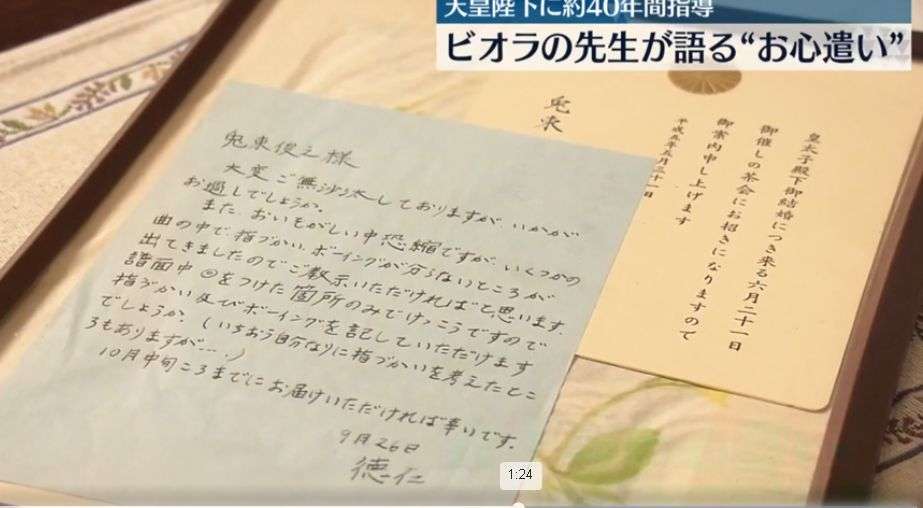 天皇陛下に約40年間指導
ビオラの先生が語る“お心遣い”
皇太子殿下御結婚につき来る六月二十一日
御催しの茶会にお招きになりますので
御案内申し上げます
平成五年五月三十一日
兎束
兎束俊之様
大変ご無沙汰しておりますが、いかが
お過しでしょうか。
また、おいそがしい中恐縮ですが、いくつかの
曲の中で、指づかい、ボーイングが分らないところが
出てきましたのでご教示いただければと思います。
譜面中◎をつけた箇所のみでけっこうですので
指づかい及びボーイングを記していただけます
でしょうか。（いちおう自分なりに指づかいを考えたとこ
ろもありますが……）
10月中旬ころまでにお届けいただければ幸いです。
9月26日
徳仁
1:24